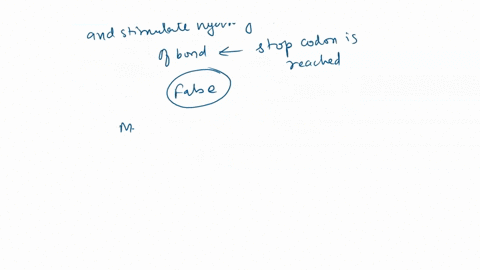 and stimulate
of bond ← stop codon is
reached
False
M